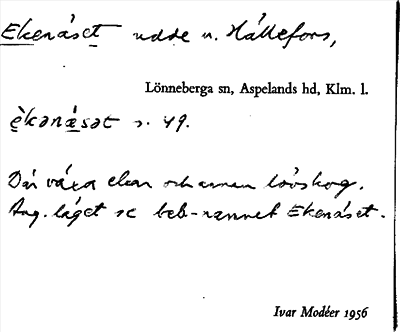 Ekenäset udde n. Hällefors,
Lönneberga sn, Aspelands hd, Klm. l.
èkənä́sət s. 49.
Där växa ekar och annan lövskog.
Ang. läget se beb-namnet Ekenäset.
Ivar Modéer 1956